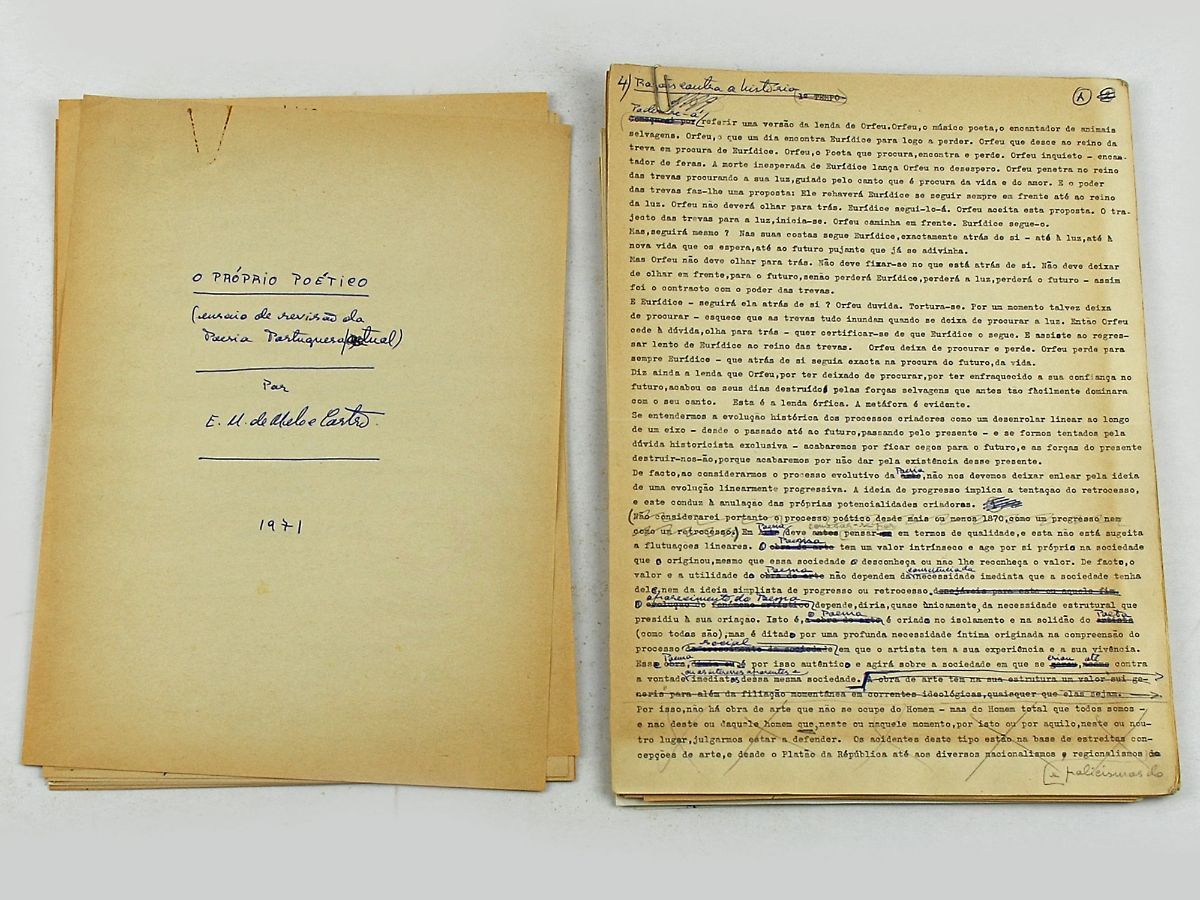 O PRÓPRIO POÉTICO
(ensaio de revisão da
Poesia Portuguesa actual)
Por
E. M. de Melo e Castro
1971
4) Razões contra a história
1º TEMPO
Poderíamos começar por referir uma versão da lenda de Orfeu.Orfeu,o músico poeta,o encantador de animais
selvagens. Orfeu,o que um dia encontra Eurídice para logo a perder. Orfeu que desce ao reino da
treva em procura de Eurídice. Orfeu,o Poeta que procura,encontra e perde. Orfeu inquieto - encan-
tador de feras. A morte inesperada de Eurídice lança Orfeu no desespero. Orfeu penetra no reino
das trevas procurando a sua luz,guiado pelo canto que é procura da vida e do amor. E o poder
das trevas faz-lhe uma proposta: Ele rehaverá Eurídice se seguir sempre em frente até ao reino
da luz. Orfeu não deverá olhar para trás. Eurídice segui-lo-á. Orfeu aceita esta proposta. O tra-
jecto das trevas para a luz,inicia-se. Orfeu caminha em frente. Eurídice segue-o.
Mas,seguirá mesmo ? Nas suas costas segue Eurídice,exactamente atrás de si - até à luz,até à
nova vida que os espera,até ao futuro pujante que já se adivinha.
Mas Orfeu não deve olhar para trás. Não deve fixar-se no que está atrás de si. Não deve deixar
de olhar em frente,para o futuro,senão perderá Eurídice,perderá a luz,perderá o futuro - assim
foi o contracto com o poder das trevas.
E Eurídice - seguirá ela atrás de si ? Orfeu duvida. Tortura-se. Por um momento talvez deixa
de procurar - esquece que as trevas tudo inundam quando se deixa de procurar a luz. Então Orfeu
cede à dúvida,olha para trás - quer certificar-se de que Eurídice o segue. E assiste ao regres-
sar lento de Eurídice ao reino das trevas. Orfeu deixa de procurar e perde. Orfeu perde para
sempre Eurídice - que atrás de si seguia exacta na procura do futuro,da vida.
Diz ainda a lenda que Orfeu,por ter deixado de procurar,por ter enfraquecido a sua confiança no
futuro,acabou os seus dias destruído pelas forças selvagens que antes tao fàcilmente dominara
com o seu canto. Esta é a lenda órfica. A metáfora é evidente.
Se entendermos a evolução histórica dos processos criadores como um desenrolar linear ao longo
de um eixo - desde o passado até ao futuro,passando pelo presente - e se formos tentados pela
dúvida historicista exclusiva - acabaremos por ficar cegos para o futuro,e as forças do presente
destruir-nos-ão,porque acabaremos por não dar pela existência desse presente.
De facto,ao considerarmos o processo evolutivo da Poesia,não nos devemos deixar enlear pela ideia
de uma evolução linearmente progressiva. A ideia de progresso implica a tentação do retrocesso,
e este conduz à anulação das próprias potencialidades criadoras.
(Não considerarei portanto o processo poético desde mais ou menos 1870,como um progresso nem
como um retrocesso.) Em Poesia deve antes pensar-se em termos de qualidade,e esta não está sugeita
a flutuações lineares. O Poema obra de arte tem um valor intrínseco e age por si próprio na sociedade
que o originou,mesmo que essa sociedade o desconheça ou não lhe reconheça o valor. De facto,o
valor e a utilidade do Poema obra de arte não dependem da necessidade imediata que a sociedade tenha
dele,nem da ideia simplista de progresso ou retrocesso,
O aparecimento do Poema depende,diria,quase ùnicamente,da necessidade estrutural que
presidiu à sua criação. Isto é,o Poema a obra de arte é criado no isolamento e na solidão do Poeta artista
(como todas são),mas é ditado por uma profunda necessidade íntima originada na compreensão do
processo social em que o artista tem a sua experiência e a sua vivência.
Esse Poema é por isso autêntico e agirá sobre a sociedade em que se criou até mesmo contra
a vontade ou os interesses aparentes e imediatos dessa mesma sociedade. A obra de arte tem na sua estrutura um valor sui ge-
neris para além da filiação momentânea em correntes ideológicas,quaisquer que elas sejam.
Por isso,não há obra de arte que não se ocupe do Homem - mas do Homem total que todos somos -
e nao deste ou daquele homem que,neste ou naquele momento,por isto ou por aquilo,neste ou nou-
tro lugar,julgarmos estar a defender. Os acidentes deste tipo estão na base de estreitas con-
cepções de arte,e desde o Platão da Répública até aos diversos nacionalismos e regionalismos